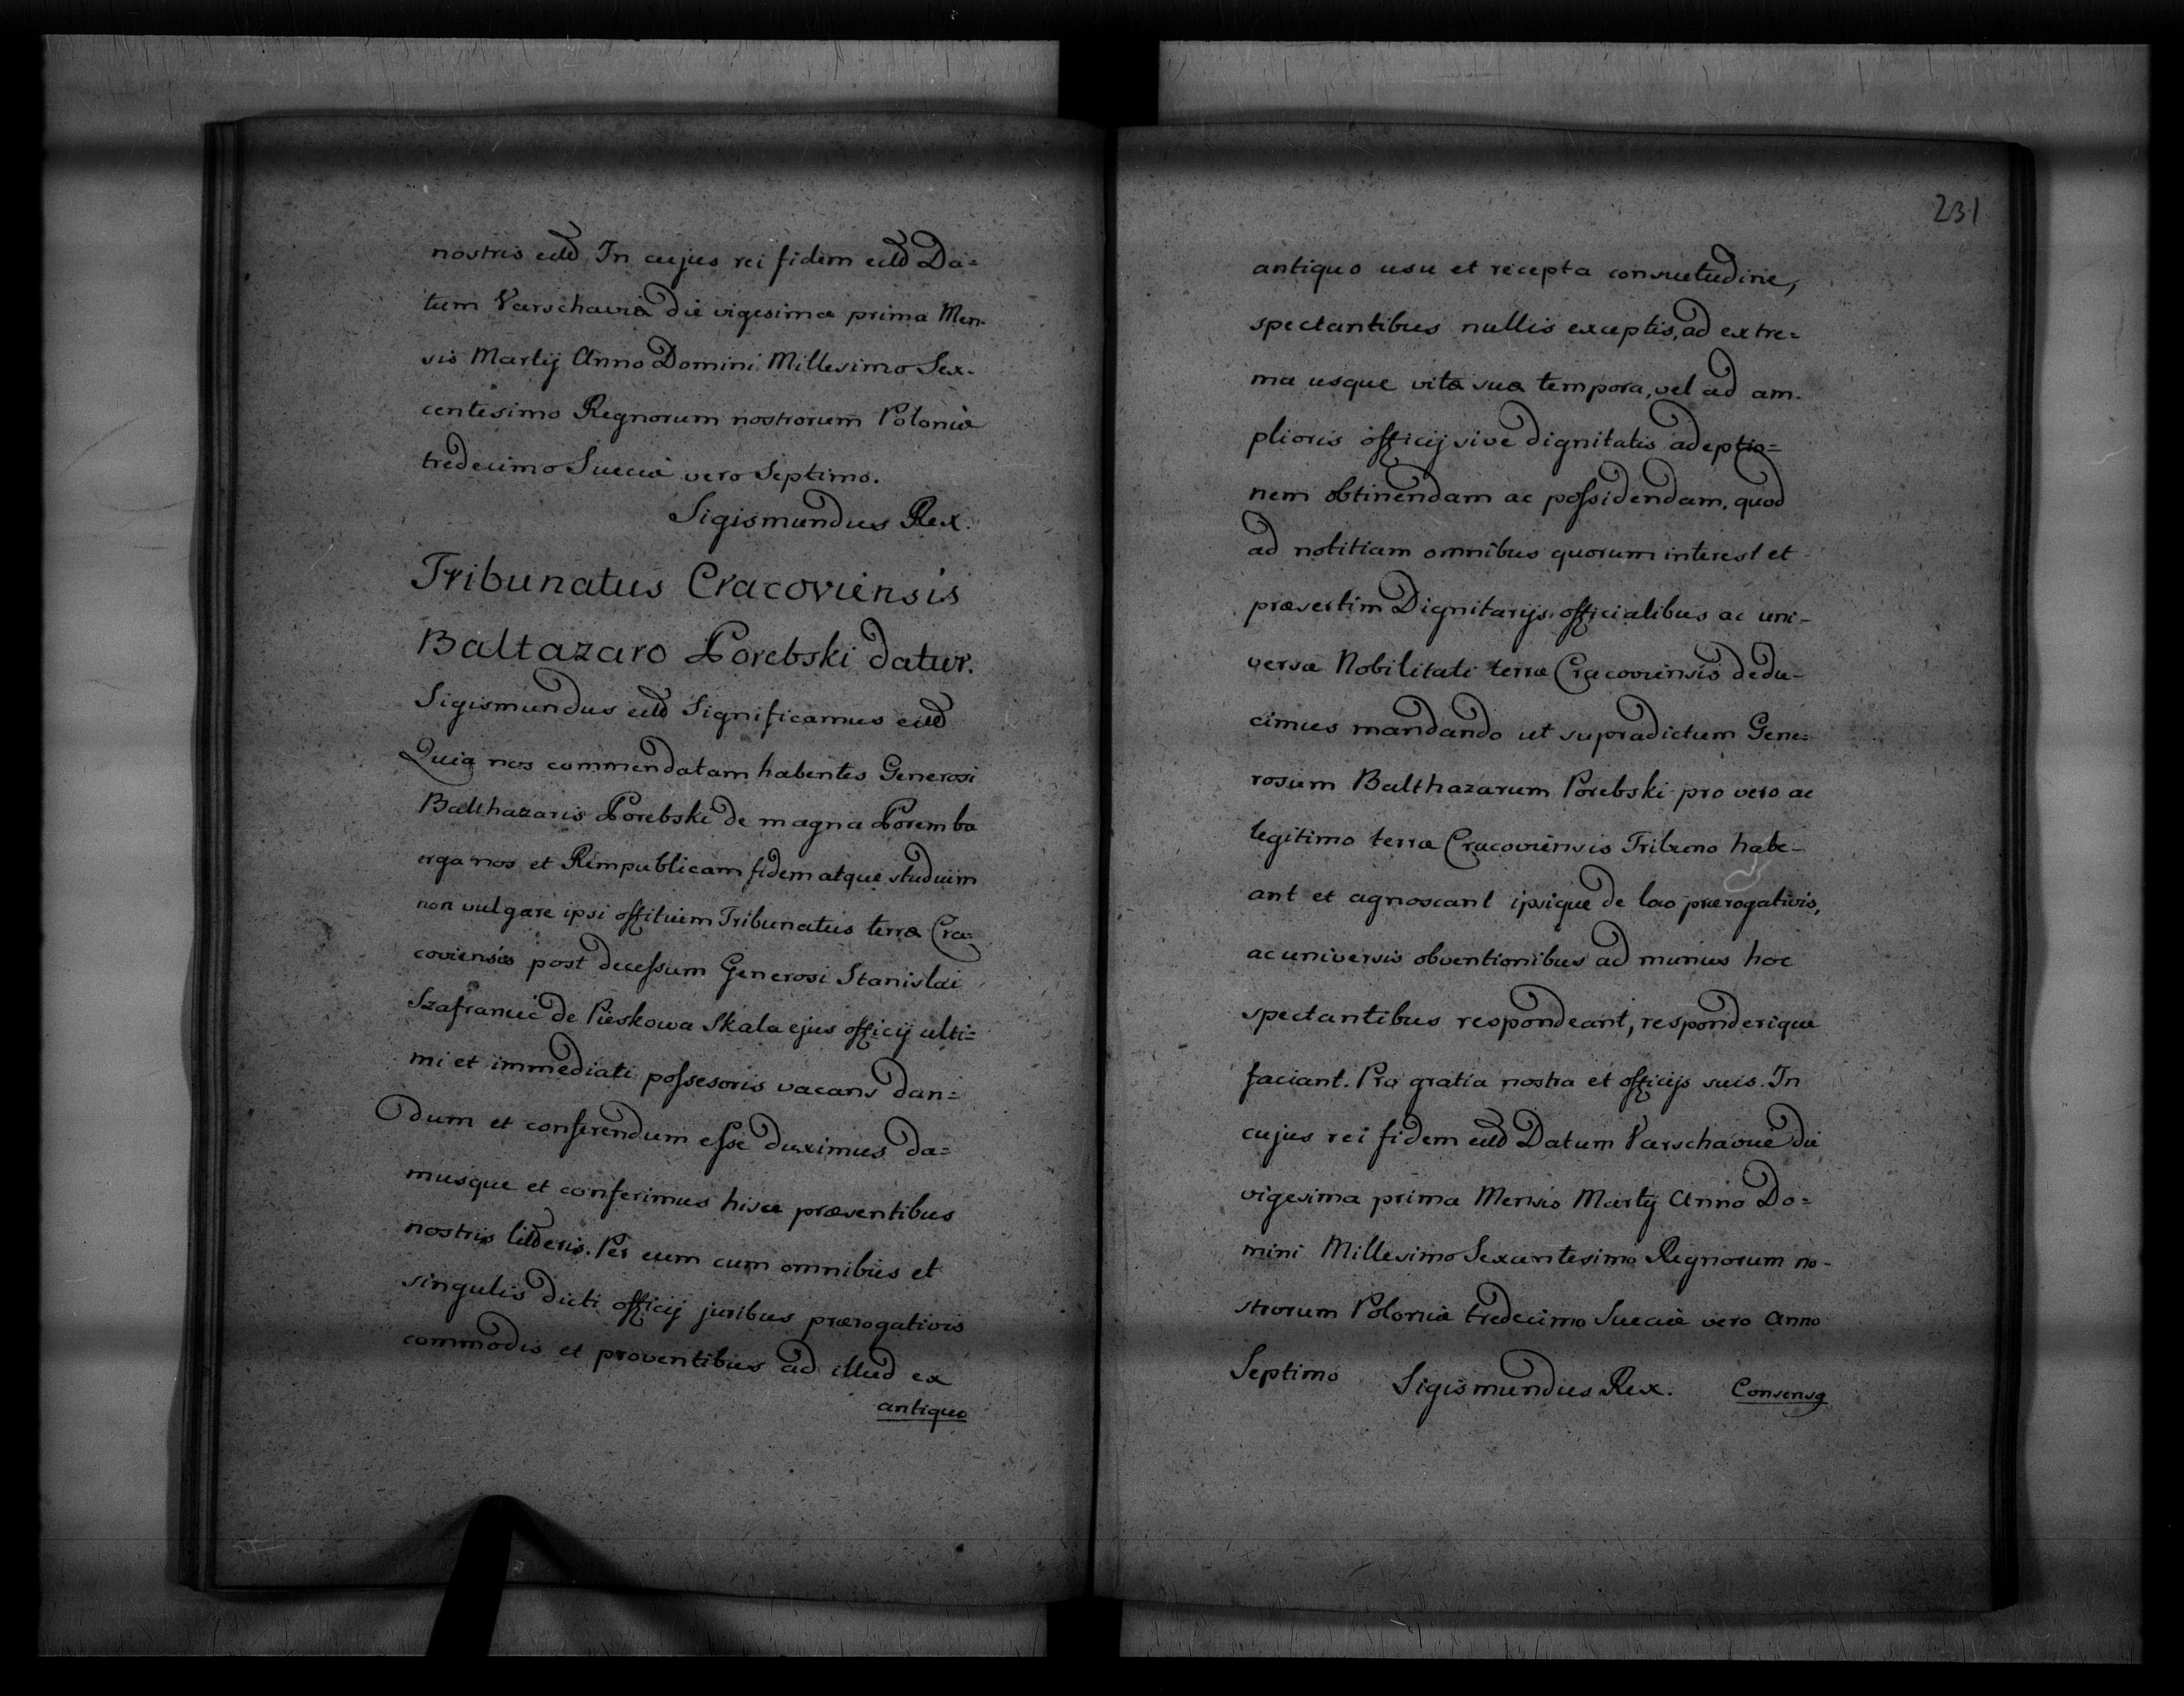 nostris etd In cujus rei fidem etd Da=
tum Varschaviæ die vigesima prima Men-
sis Martij Anno Domini Millesimo Sex-
centesimo Regnorum nostrorum Poloniæ
tredecimo Sueciæ vero Septimo.
Sigismundus Rex.
Tribunatus Cracoviensis
Baltazaro Porebski datur.
Sigismundus etd Significamus etd
Quia nos commendatam habentes Generosi
Balthazaris Porebski de magna Poremba
erga nos et Rempublicam fidem atque studium
non vulgare ipsi offitium Tribunatus terræ Cra=
coviensis post decessum Generosi Stanislai
Szafraniec de Pieskowa Skala ejus officij ulti=
mi et immediati possesoris vacans dan=
dum et conferendum esse duximus da=
musque et conferimus hisce præsentibus
nostris litteris. Per eum cum omnibus et
singulis dicti officij juribus prærogativis
commodis et proventibus ad illud ex
antiquo
231
antiquo usu et recepta consuetudine,
spectantibus nullis exceptis, ad extre=
ma usque vitæ suæ tempora, vel ad am-
plioris officij sive dignitatis adeptio=
nem obtinendam ac possidendam, quod
ad notitiam omnibus quorum interest et
præsertim Dignitarijs, officialibus ac uni-
versæ Nobilitati terræ Cracoviensis dedu-
cimus mandando ut supradictum Gene=
rosum Balthazarum Porebski pro vero ac
legitimo terræ Cracoviensis Tribuno habe-
ant et agnoscant ipsique de loco prærogativis,
ac universis obventionibus ad munus hoc
spectantibus respondeant, responderique
faciant. Pro gratia nostra et officijs suis. In
cujus rei fidem etd Datum Varschaviæ die
vigesima prima Mensis Martij Anno Do=
mini Millesimo Sexcentesimo Regnorum no-
strorum Poloniæ tredecimo Sueciæ vero Anno
Septimo Sigismundus Rex. Consensq